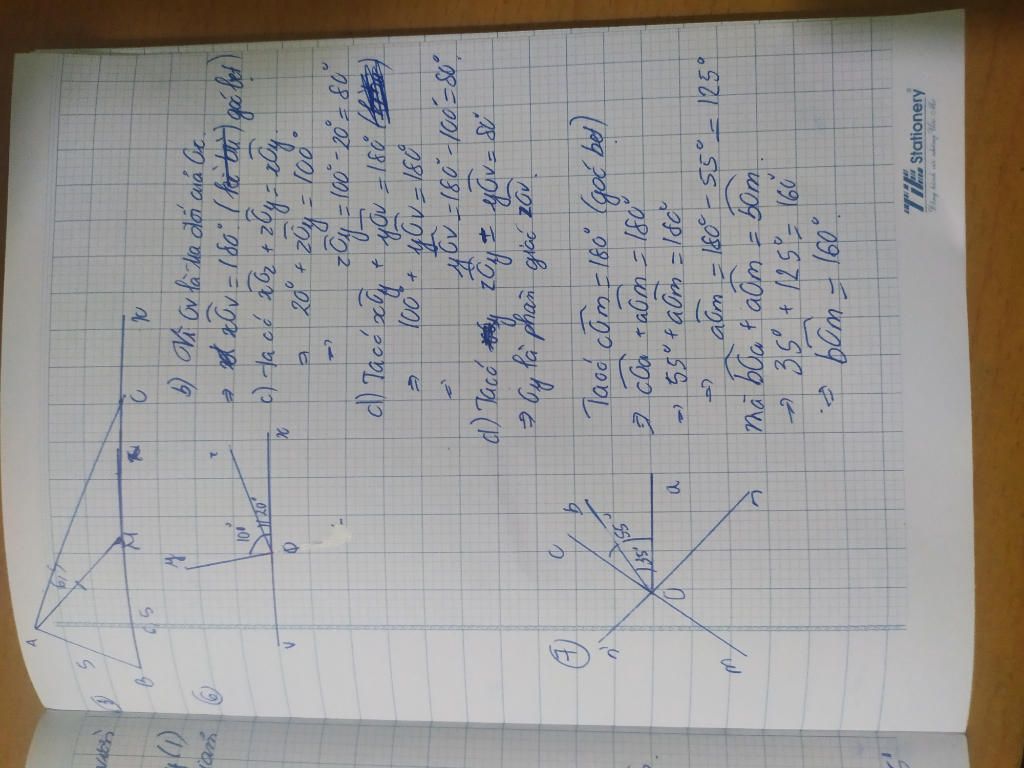 ③
A
5
6,5
6,5
B
M
C
x
⑥
y
z
100°
20°
v
O
x
b) Vì Ov là tia đối của Ox
⇒ xOv = 180° (góc bẹt)
c) Ta có xOz + zOy = xOy
⇒ 20° + zOy = 100°
⇒ zOy = 100° - 20° = 80°
d) Ta có xOy + yOv = 180°
⇒ 100° + yOv = 180°
⇒ yOv = 180° - 100° = 80°
d) Ta có zOy = yOv = 80°
⇒ Oy là phân giác zOv.
⑦
n
c
b
55°
35°
O
a
m
n
Ta có cOm = 180° (góc bẹt)
⇒ cOa + aOm = 180°
⇒ 55° + aOm = 180°
⇒ aOm = 180° - 55° = 125°
mà bOa + aOm = bOm.
⇒ 35° + 125° = 160°
⇒ bOm = 160°
TTE Stationery
(1)